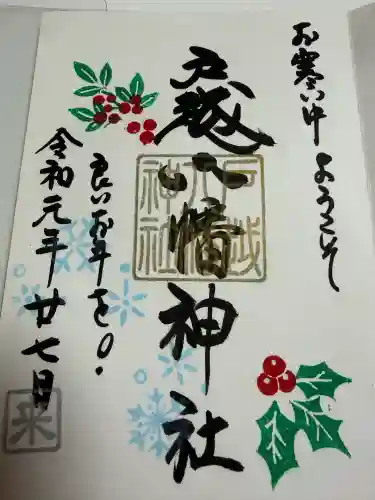 お寒い中ようこそ
戸越八幡神社
戸越八幡神社
良いお年を。
令和元年廿七日
来